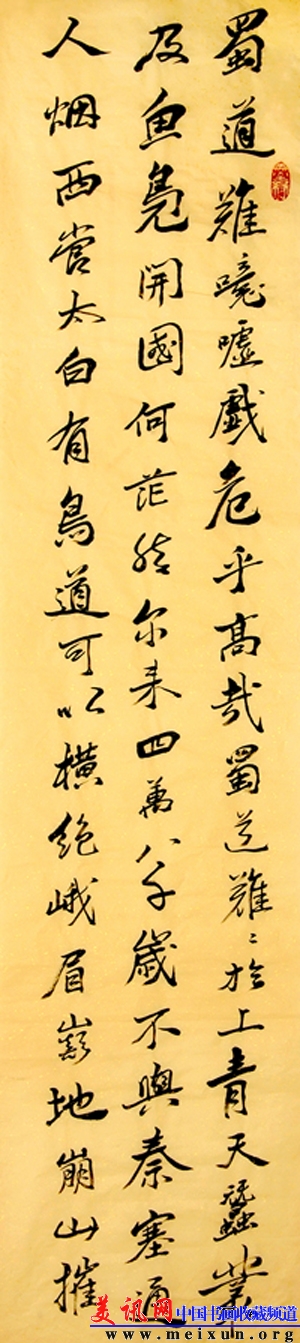 蜀道難噫嘘戲危乎高哉蜀道難〻於上青天蠶叢
及魚鳧開國何茫然尔来四萬八千歲不與秦塞通
人烟西當太白有鳥道可以橫絶峨眉巔地崩山摧
美讯网 中国书画收藏频道
www.meixun.org